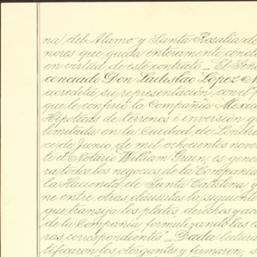 na del Alamo y Santa Rosalia de
noras que queda enteramente conclu
en virtud de este contrato._ El Señ
cenciado Don Ladislao Lopez N
acredita su representación con el p
que le confirió la Compañia Mexica
Hipotecas de terrenos é inversión y
limitada en la Ciudad de Londre
ce de Junio de mil ochocientos nove
te el Notario William Grain, es gener
ra todos los negocios de la Compañia
la Hacienda de Santa Catalina y
ne entre otras cláusulas la siguiente
que transija los pleitos, derechos y ac
de la Compañia formalizando las es
ras correspondientes._ Leida
tificaron los otorgantes y firmaron, si